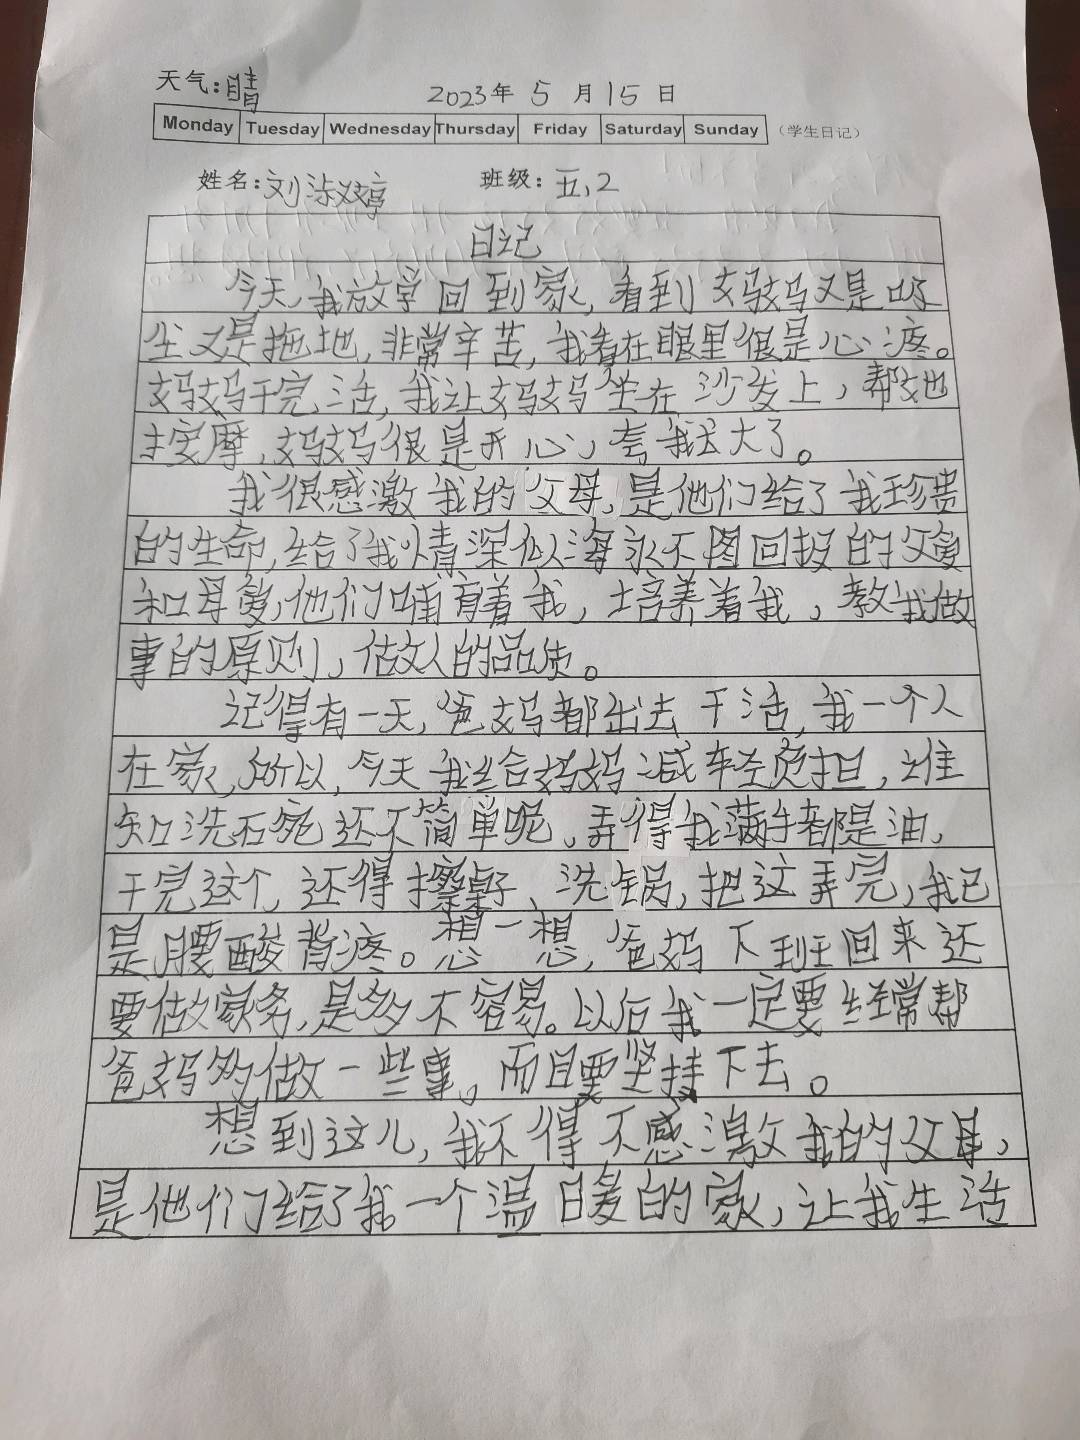 天气：晴 2023年 5 月 15 日
Monday Tuesday Wednesday Thursday Friday Saturday Sunday （学生日记）
姓名：刘淑婷 班级：五，2
日记
今天，我放学回到家，看到妈妈又是吸
尘又是拖地，非常辛苦，我看在眼里很是心疼。
妈妈干完活，我让妈妈坐在沙发上，帮她
按摩，妈妈很是开心，夸我长大了。
我很感激我的父母，是他们给了我珍贵
的生命，给了我情深似海永不图回报的父爱
和母爱，他们哺育着我，培养着我，教我做
事的原则，做人的品质。
记得有一天，爸妈都出去干活，我一个人
在家，所以，今天我给妈妈减轻负担，谁
知洗碗还不简单呢，弄得我满手都是油，
干完这个，还得擦桌子、洗锅，把这弄完，我已
是腰酸背疼。想一想，爸妈下班回来还
要做家务，是多不容易。以后我一定要经常帮
爸妈多做一些事。而且要坚持下去。
想到这儿，我不得不感激我的父母，
是他们给了我一个温暖的家，让我生活